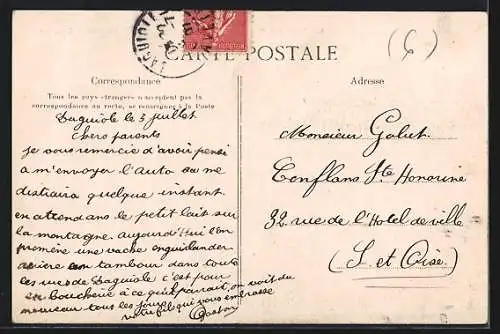 LAGUIOLE
(6)
CARTE POSTALE
Correspondance
Tous les pays étrangers n'acceptent pas la
correspondance au recto, se renseigner à la Poste
Laguiole le 3 juillet
Chers parents
je vous remercie d'avoir pensé
a m'envoyer l'Auto ça me
distraira quelque instant
en attendant le petit lait sur
la montagne. aujourd'Hui l'on
promène une vache enguirlander
arriere tambour dans toute
les rues de Laguiole c'est pour
en boucherie à ce qu'il parait, on voit du
nouveau tous les jours
votre fils qui vous embrasse
Gaston
Adresse
Monsieur Galut
Conflans Ste Honorine
32 rue de l'Hotel de ville
(S. et Oise)